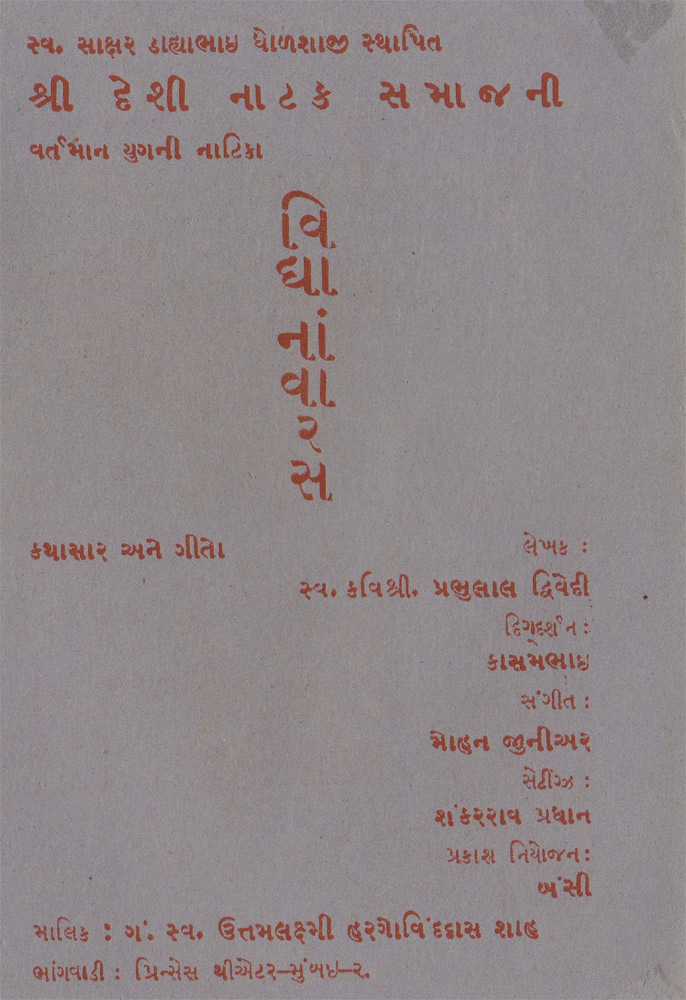 સ્વ. સાક્ષર ડાહ્યાભાઇ ધોળશાજી સ્થાપિત
શ્રી દેશી નાટક સમાજની
વર્તમાન યુગની નાટિકા
વિ
દ્યા
નાં
વા
ર
સ
કથાસાર અને ગીતો
લેખક :
સ્વ. કવિશ્રી. પ્રભુલાલ દ્વિવેદી
દિગ્દર્શન :
કાસમભાઇ
સંગીત :
મોહન જીનીઅર
સેટીંગ્ઝ :
શંકરરાવ પ્રધાન
પ્રકાશ નિયોજન :
બંસી
માલિક : ગં. સ્વ. ઉત્તમલક્ષ્મી હરગોવિંદદાસ શાહ
ભાંગવાડી : પ્રિન્સેસ થીએટર–મુંબઇ–૨.